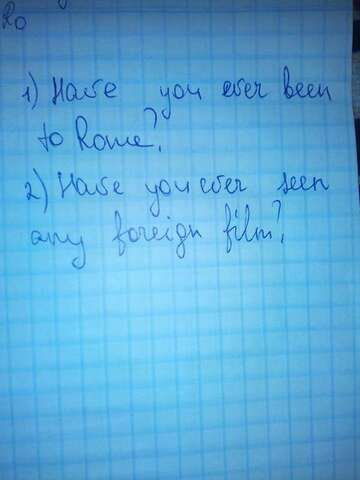 Ro
1) Have you ever been
to Rome?
2) Have you ever seen
any foreign film?